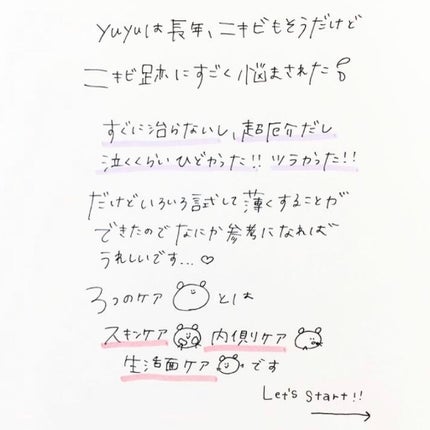 yuyuは長年、ニキビもそうだけど
ニキビ跡にすごく悩まされた
すぐに治らないし、超厄介だし
泣くくらいひどかった!! ツラかった!!
だけどいろいろ試して薄くすることが
できたのでなにか参考になれば
うれしいです...♡
3つのケア とは
スキンケア 内側ケア
生活面ケア です
Let's Start!!